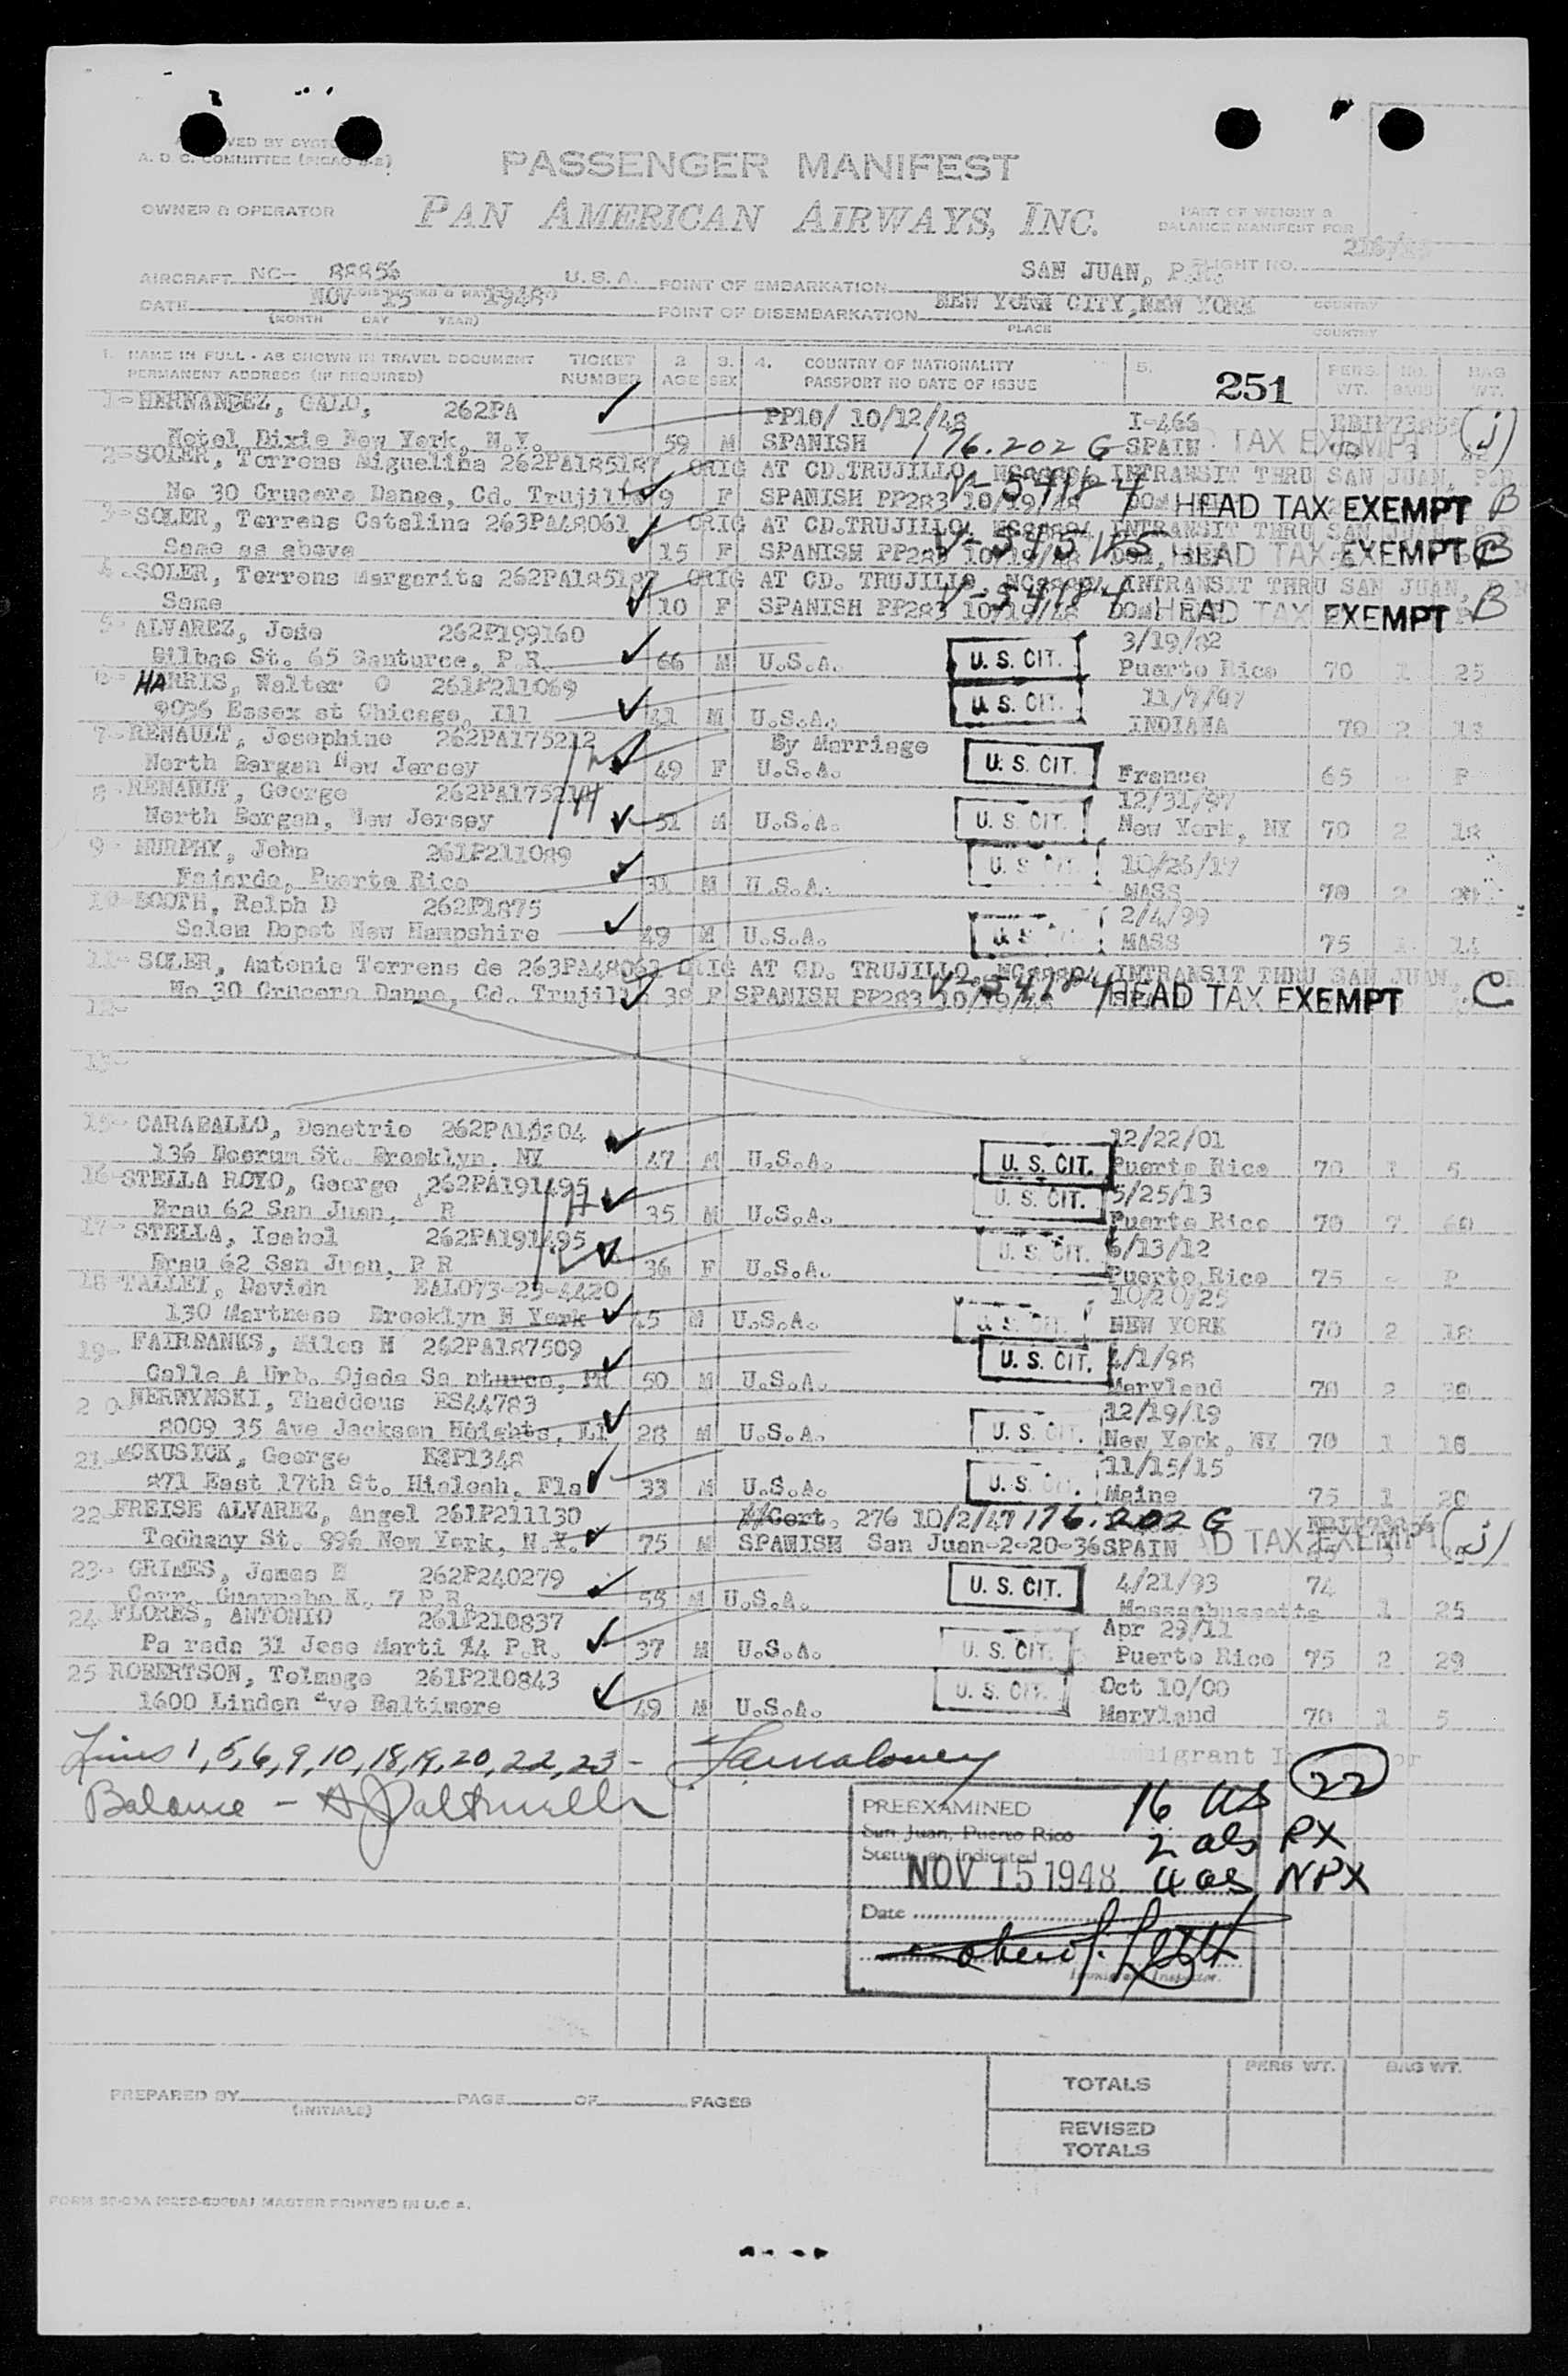 PASSENGER MANIFEST
OWNER & OPERATOR
PAN AMERICAN AIRWAYS, INC.
PART OF WEIGHT &
BALANCE MANIFEST FOR
AIRCRAFT NC- 88856 U.S.A. POINT OF EMBARKATION SAN JUAN, P.R. FLIGHT NO.
DATE NOV 15 1948 POINT OF DISEMBARKATION NEW YORK CITY, NEW YORK COUNTRY
(MONTH DAY YEAR) PLACE COUNTRY
1. NAME IN FULL - AS SHOWN IN TRAVEL DOCUMENT TICKET 2 3. 4. COUNTRY OF NATIONALITY 5. 251 PERS. NO. BAG
PERMANENT ADDRESS (IF REQUIRED) NUMBER AGE SEX PASSPORT NO DATE OF ISSUE WT. BAGS WT.
1- HERNANDEZ, 262PA PP10/ 10/12/48 I-466 (J)
Hotel Dixie New York, N.Y. 59 M SPANISH 176.202 G SPAIN TAX EXEMPT
2- SOLER, Torrens Miguelina 262PA185187 ORIG AT CD.TRUJILLO, INTRANSIT THRU SAN JUAN, P.R.
No 30 Crucero Danae, Cd. Trujillo 9 F SPANISH PP283 10/19/48 V-54184 HEAD TAX EXEMPT B
3- SOLER, Torrens Catalina 263PA48061 ORIG AT CD.TRUJILLO, INTRANSIT THRU SAN JUAN
Same as above 15 F SPANISH PP283 10/19/48 HEAD TAX EXEMPT
4- SOLER, Torrens Margarita 262PA185187 ORIG AT CD. TRUJILLO, INTRANSIT THRU SAN JUAN,
Same 10 F SPANISH PP283 10/19/48 V-54184 HEAD TAX EXEMPT B
5- ALVAREZ, Jose 262P199160 3/19/82
Bilbao St. 65 Santurce, P.R. 66 M U.S.A. U.S. CIT. Puerto Rico 70 1 25
6- HARRIS, Walter O 261P211069 11/7/07
9036 Essex st Chicago, Ill 41 M U.S.A. U.S. CIT. INDIANA 70 2
7- RENAULT, Josephine 262PA175212 By Marriage
North Bergen New Jersey 49 F U.S.A. U.S. CIT. France 65 - P
8- RENAULT, George 12/31/97
North Bergen, New Jersey 51 M U.S.A. U.S. CIT. New York, NY 70 2 18
9- MURPHY, John 261P211089 10/26/17
Fajardo, Puerto Rico 31 M U.S.A. U.S. CIT. MASS 70 2
10- BOOTH, Ralph D 262P1875 2/4/99
Salem Depot New Hampshire 49 M U.S.A. MASS 75 14
11- SOLER, Antonia Torrens de 263PA48061 ORIG AT CD. TRUJILLO, INTRANSIT THRU SAN JUAN,
No 30 Crucero Danae, Cd. Trujillo 38 F SPANISH PP283 10/19/48 V-54184 HEAD TAX EXEMPT C
12-
13-
15- CARABALLO, Demetrio 12/22/01
136 Boerum St. Brooklyn, NY 47 M U.S.A. U.S. CIT. Puerto Rico 70 1 5
16- STELLA ROYO, George 262PA191495 5/25/13
Brau 62 San Juan, R 35 M U.S.A. U.S. CIT. Puerto Rico 70 7 60
17- STELLA, Isabel 262PA191495 6/13/12
Brau 62 San Juan, P R 36 F U.S.A. U.S. CIT. Puerto Rico 75 - P
18 TALLEY, EAL073-29-4420 10/20/25
130 Brooklyn N York M U.S.A. NEW YORK 70 2 18
19- FAIRBANKS, Miles M 262PA187509 4/1/98
Calle A Urb. Ojeda Sa nturce, PR 50 M U.S.A. U.S. CIT. Maryland 70 2
20- NERWYNSKI, Thaddeus ES44783 12/19/19
8009 35 Ave Jackson Heights, LI 28 M U.S.A. U.S. CIT. New York, NY 70 1 18
21- MCKUSICK, George 11/15/15
271 East 17th St. Hialeah, Fla 33 M U.S.A. U.S. CIT. Maine 75 1 20
22- FREISE ALVAREZ, Angel 261P211130 Cert. 276 10/2/47 176.202 G
996 New York, N.Y. 75 M SPANISH San Juan-2-20-36 SPAIN TAX EXEMPT (J)
23- GRIMES, James E 262P240279 4/21/93 74
Carr. Guaynabo K. 7 P.R. M U.S.A. U.S. CIT. Massachussetts 1 25
24 FLORES, ANTONIO 261P210837 Apr 29/11
Pa rada 31 Jose Marti P.R. 37 M U.S.A. U.S. CIT. Puerto Rico 75 2 29
25 ROBERTSON, Talmage 261P210843 Oct 10/00
1600 Linden Ave Baltimore 49 M U.S.A. U.S. CIT. Maryland 70 1 5
Lines 1,5,6,9,10,18,19,20,22,23 - Immigrant Inspector
Balance - 22
PREEXAMINED 16 US
San Juan, Puerto Rico 2 als PX
Status as indicated
NOV 15 1948 4 als NPX
Date
Immigrant Inspector.
TOTALS PERS WT. BAG WT.
PREPARED BY PAGE OF PAGES
(INITIALS)
REVISED
TOTALS
MASTER PRINTED IN U.S.A.